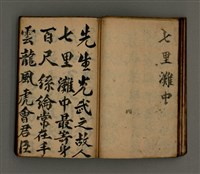 七里灘中
先生光武之故人
七里灘中最等身
百尺絲綸常在手
雲龍風虎會君臣